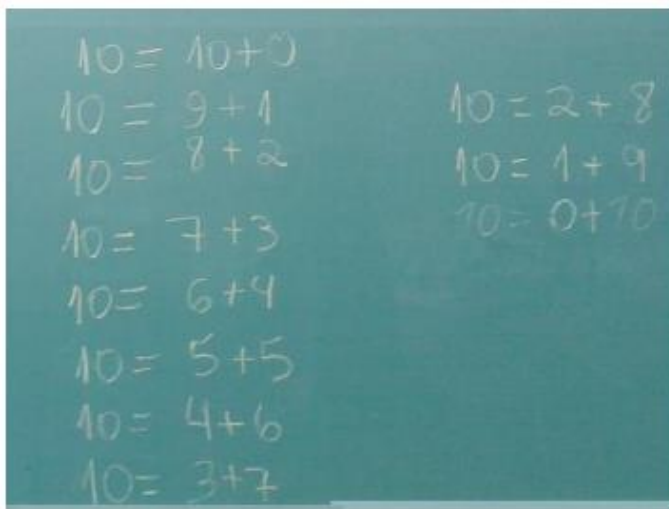 10 = 10+0
10 = 9+1
10 = 8+2
10 = 7+3
10 = 6+4
10 = 5+5
10 = 4+6
10 = 3+7
10 = 2+8
10 = 1+9
10 = 0+10